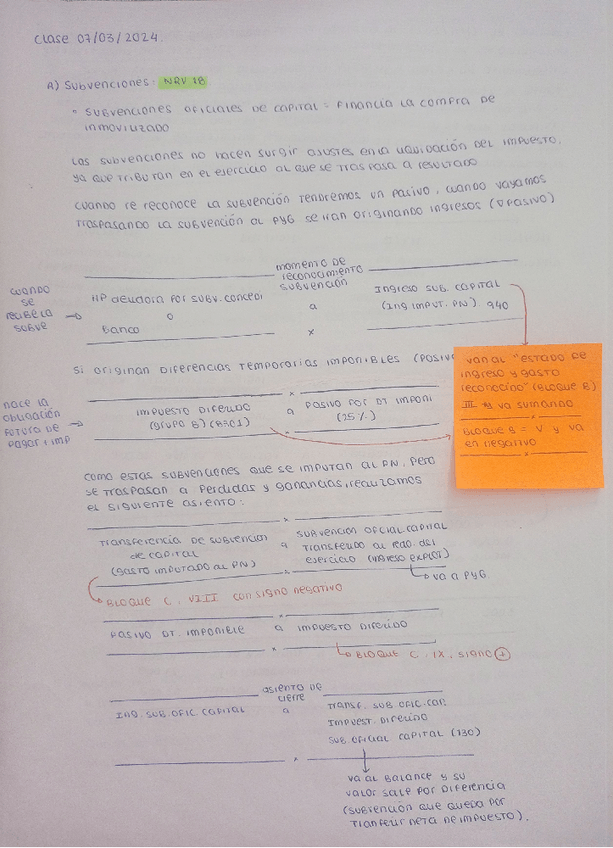 Clase 07/03/2024.
A) Subvenciones: NRV 18
• Subvenciones oficiales de capital = Financia la compra de
inmovilizado
Las subvenciones no hacen surgir ajustes en la liquidación del impuesto,
ya que tributan en el ejercicio al que se traspasa a resultado.
Cuando se reconoce la subvención tendremos un pasivo, cuando vayamos
traspasando la subvención al PYG se iran originando ingresos (∇Pasivo)
momento de
reconocimiento
subvención
cuando
se
recibe la
subve →
HP deudora por subv. concedi
o
Banco
a
Ingreso sub. capital
(Ing imput. PN). 940
x
Si originan diferencias temporarias imponibles (pasiv
van al "estado de
ingreso y gasto
reconocido" (Bloque B)
III y va sumando
Bloque B = V y va
en negativo
nace la
obligación
futuro de
pagar imp →
x
Impuesto diferido
(grupo 8) (8301)
a
Pasivo por DT imponi
(25%)
x
como estas subvenciones que se imputan al PN, pero
se traspasan a Perdidas y ganancias, realizamos
el siguiente asiento:
x
Transferencia de subvención
de capital
(gasto imputado al PN)
a
Subvención oficial capital
transferido al rdo. del
ejercicio (ingreso explot)
x
→ va a PyG
→ Bloque C. VIII con signo negativo
x
Pasivo DT. imponible a impuesto diferido
x
→ Bloque C. IX. signo ⊕
asiento de
cierre
Ing. sub. ofic. capital
a
Transf. sub ofic. cap.
Impuest. Diferido
Sub. oficial capital (130)
x
va al Balance y su
valor sale por diferencia
(subvención que queda por
tranferir neta de impuesto).